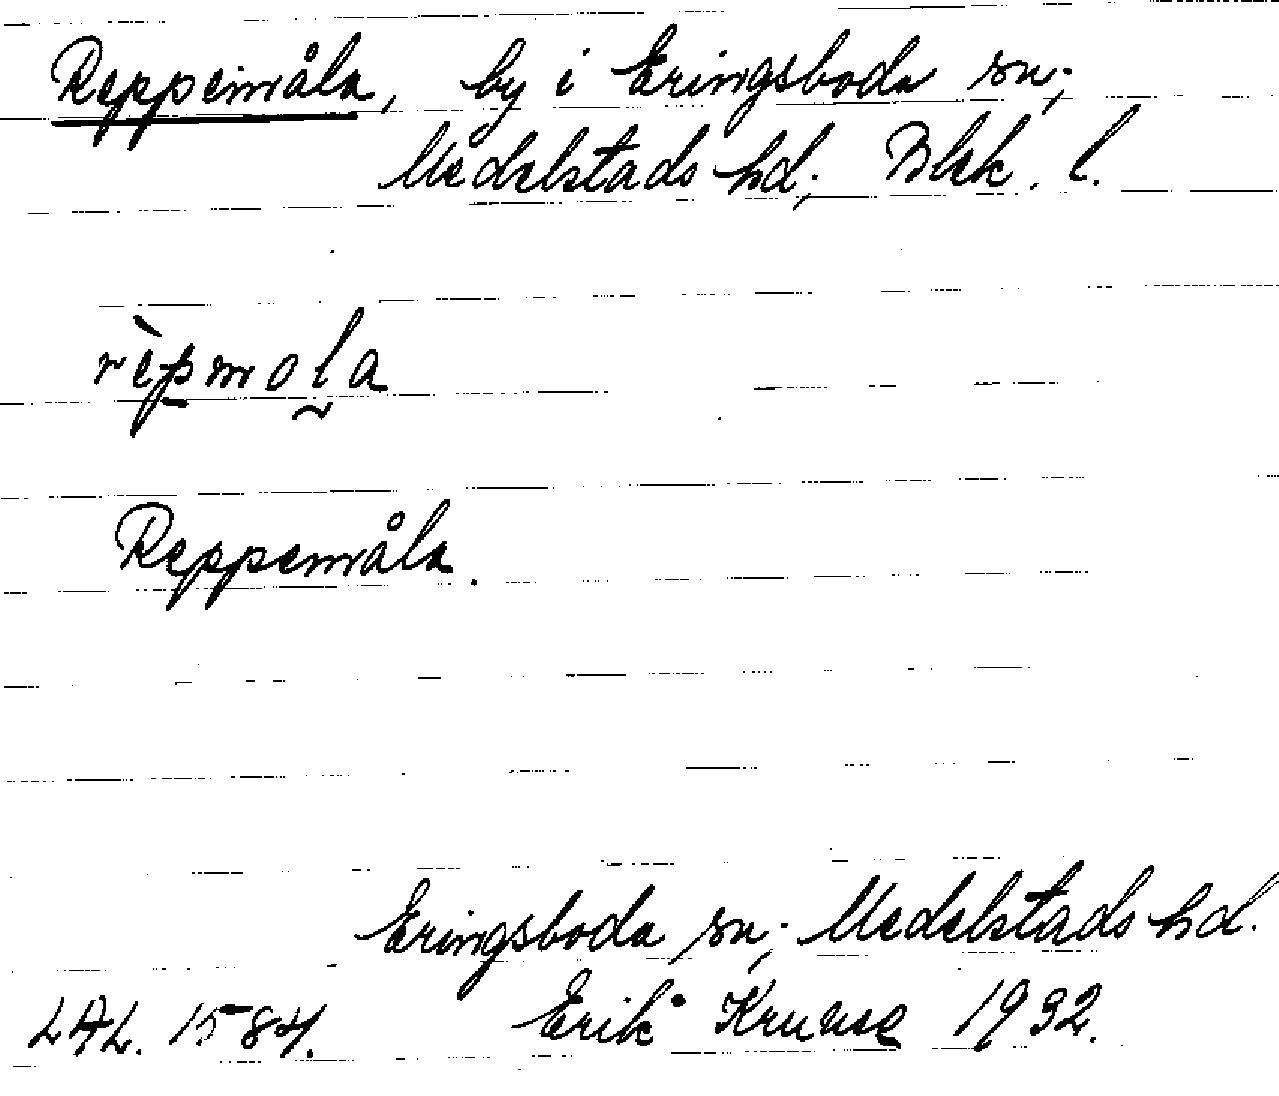 Reppemåla, by i Eringsboda sn,
Medelstads hd, Blek. l.
rèpmola
Reppemåla.
Eringsboda sn, Medelstads hd.
LAL. 1584. Erik Kruuse 1932.